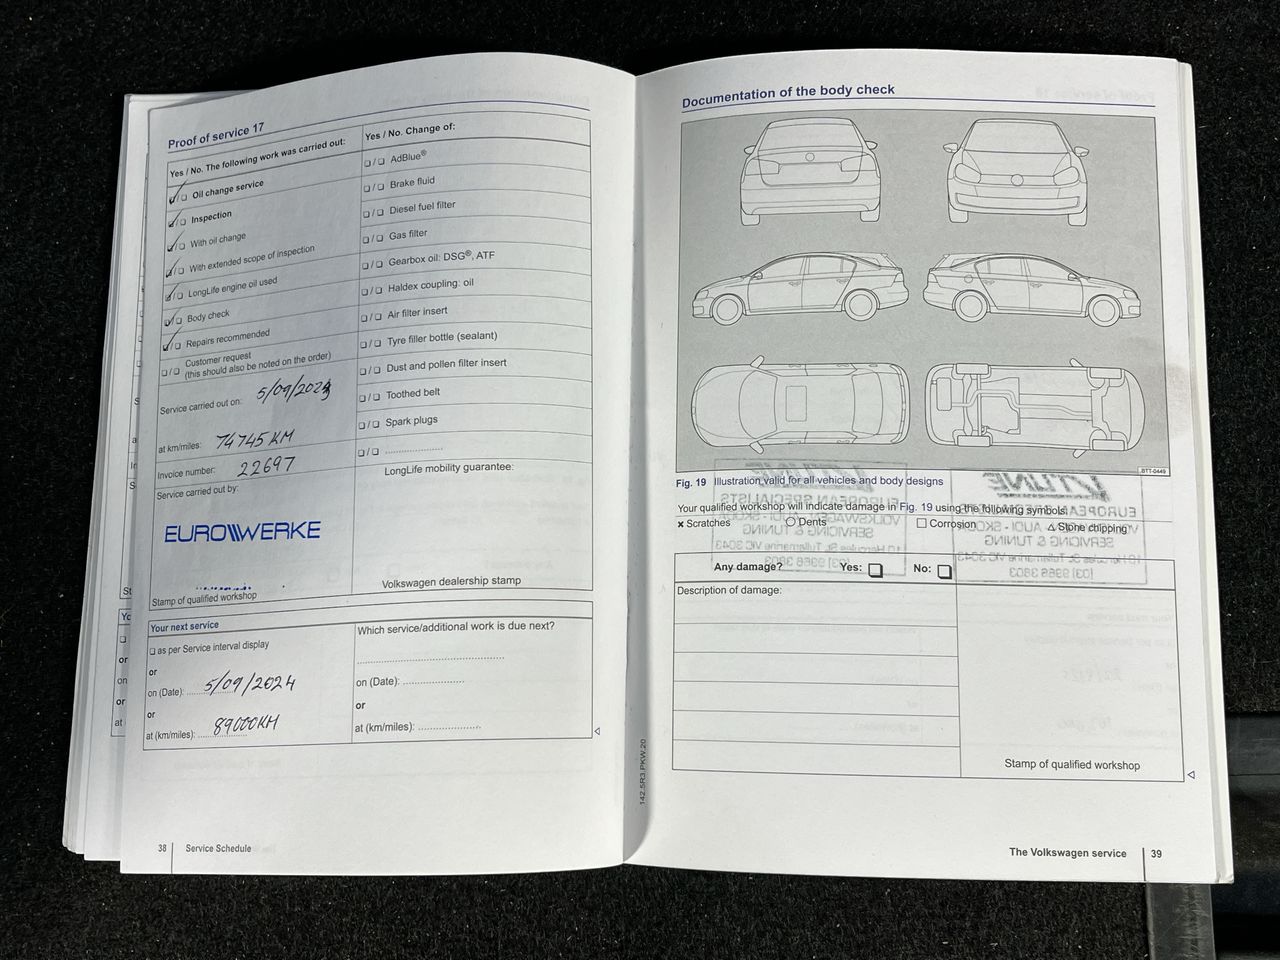 Proof of service 17
Yes / No. The following work was carried out:
Oil change service
Inspection
With oil change
With extended scope of inspection
LongLife engine oil used
Body check
Repairs recommended
Customer request
(this should also be noted on the order)
Service carried out on: 5/09/2023
at km/miles: 74745 KM
Invoice number: 22697
Service carried out by:
EUROWERKE
Stamp of qualified workshop
Yes / No. Change of:
AdBlue®
Brake fluid
Diesel fuel filter
Gas filter
Gearbox oil: DSG®, ATF
Haldex coupling: oil
Air filter insert
Tyre filler bottle (sealant)
Dust and pollen filter insert
Toothed belt
Spark plugs
LongLife mobility guarantee:
Volkswagen dealership stamp
Your next service
as per Service interval display
or
on (Date): 5/09/2024
or
at (km/miles): 89000KM
Which service/additional work is due next?
on (Date):
or
at (km/miles):
38 Service Schedule
142.5R3.PKW.20
Documentation of the body check
BTT-0449
Fig. 19 Illustration valid for all vehicles and body designs
Your qualified workshop will indicate damage in Fig. 19 using the following symbols:
Scratches Dents Corrosion Stone chipping
Any damage? Yes: No:
Description of damage:
Stamp of qualified workshop
The Volkswagen service 39